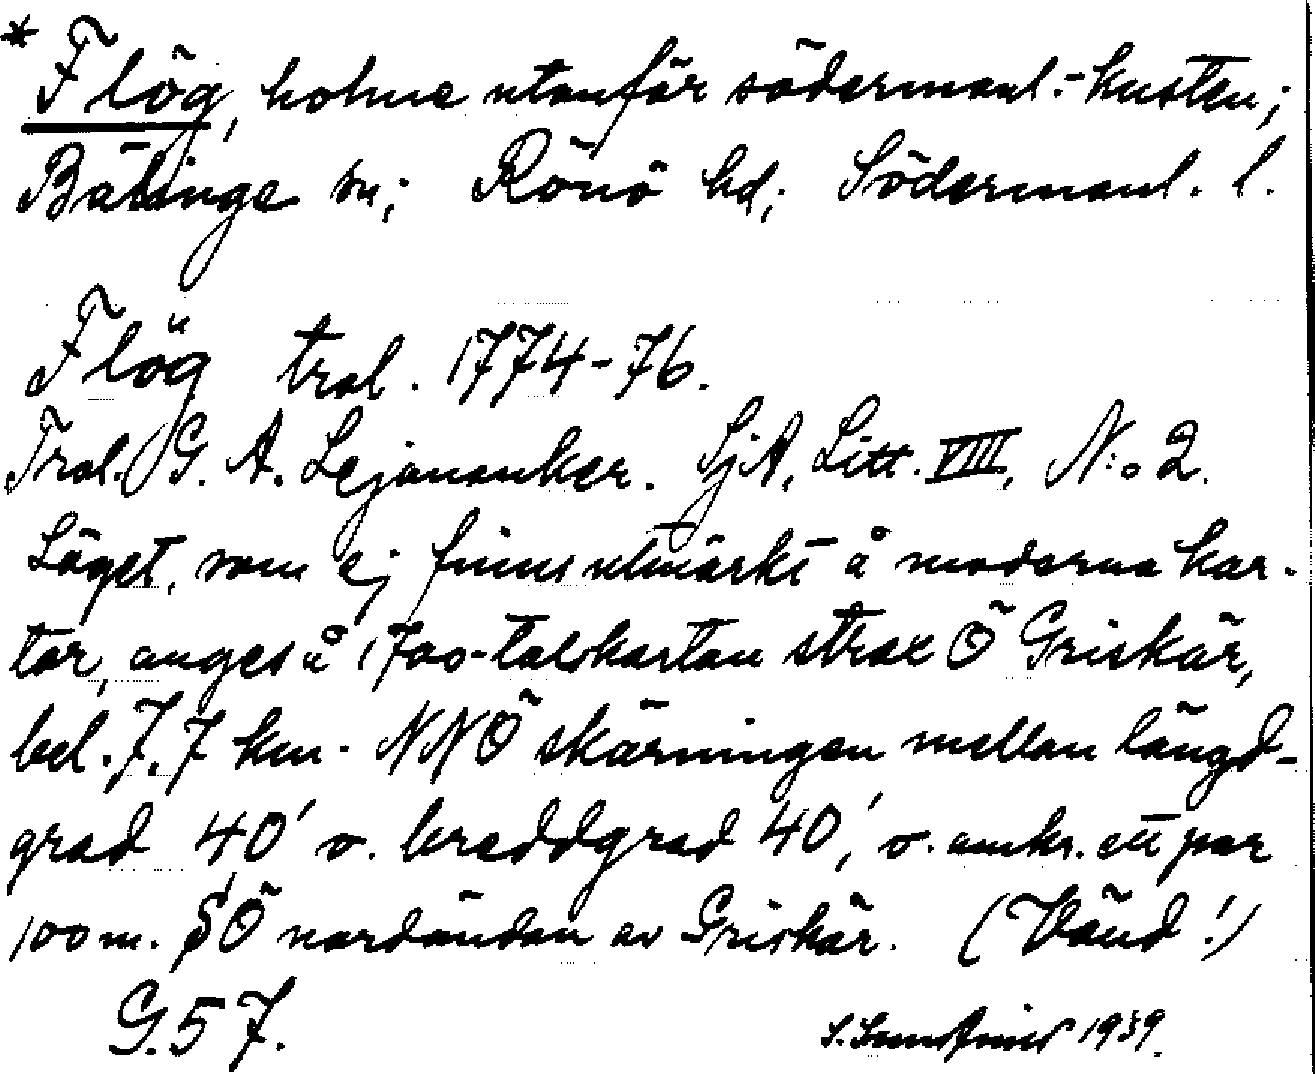 * Flög, holme utanför södermanl.-kusten;
Bälinge sn; Rönö hd; Södermanl. l.
Flög trol. 1774-76.
Trol. G. A. Lejonanker. SjA, Litt. VIII, N:o 2.
Läget, som ej finns utmärkt å moderna kar-
tor, anges å 1700-talskartan strax Ö Griskär,
bel. 7,7 km. NNÖ skärningen mellan längd-
grad 40' o. breddgrad 40', o. omkr. ett par
100 m. SÖ nordändan av Griskär. (Vänd!)
G. 57. 1939.